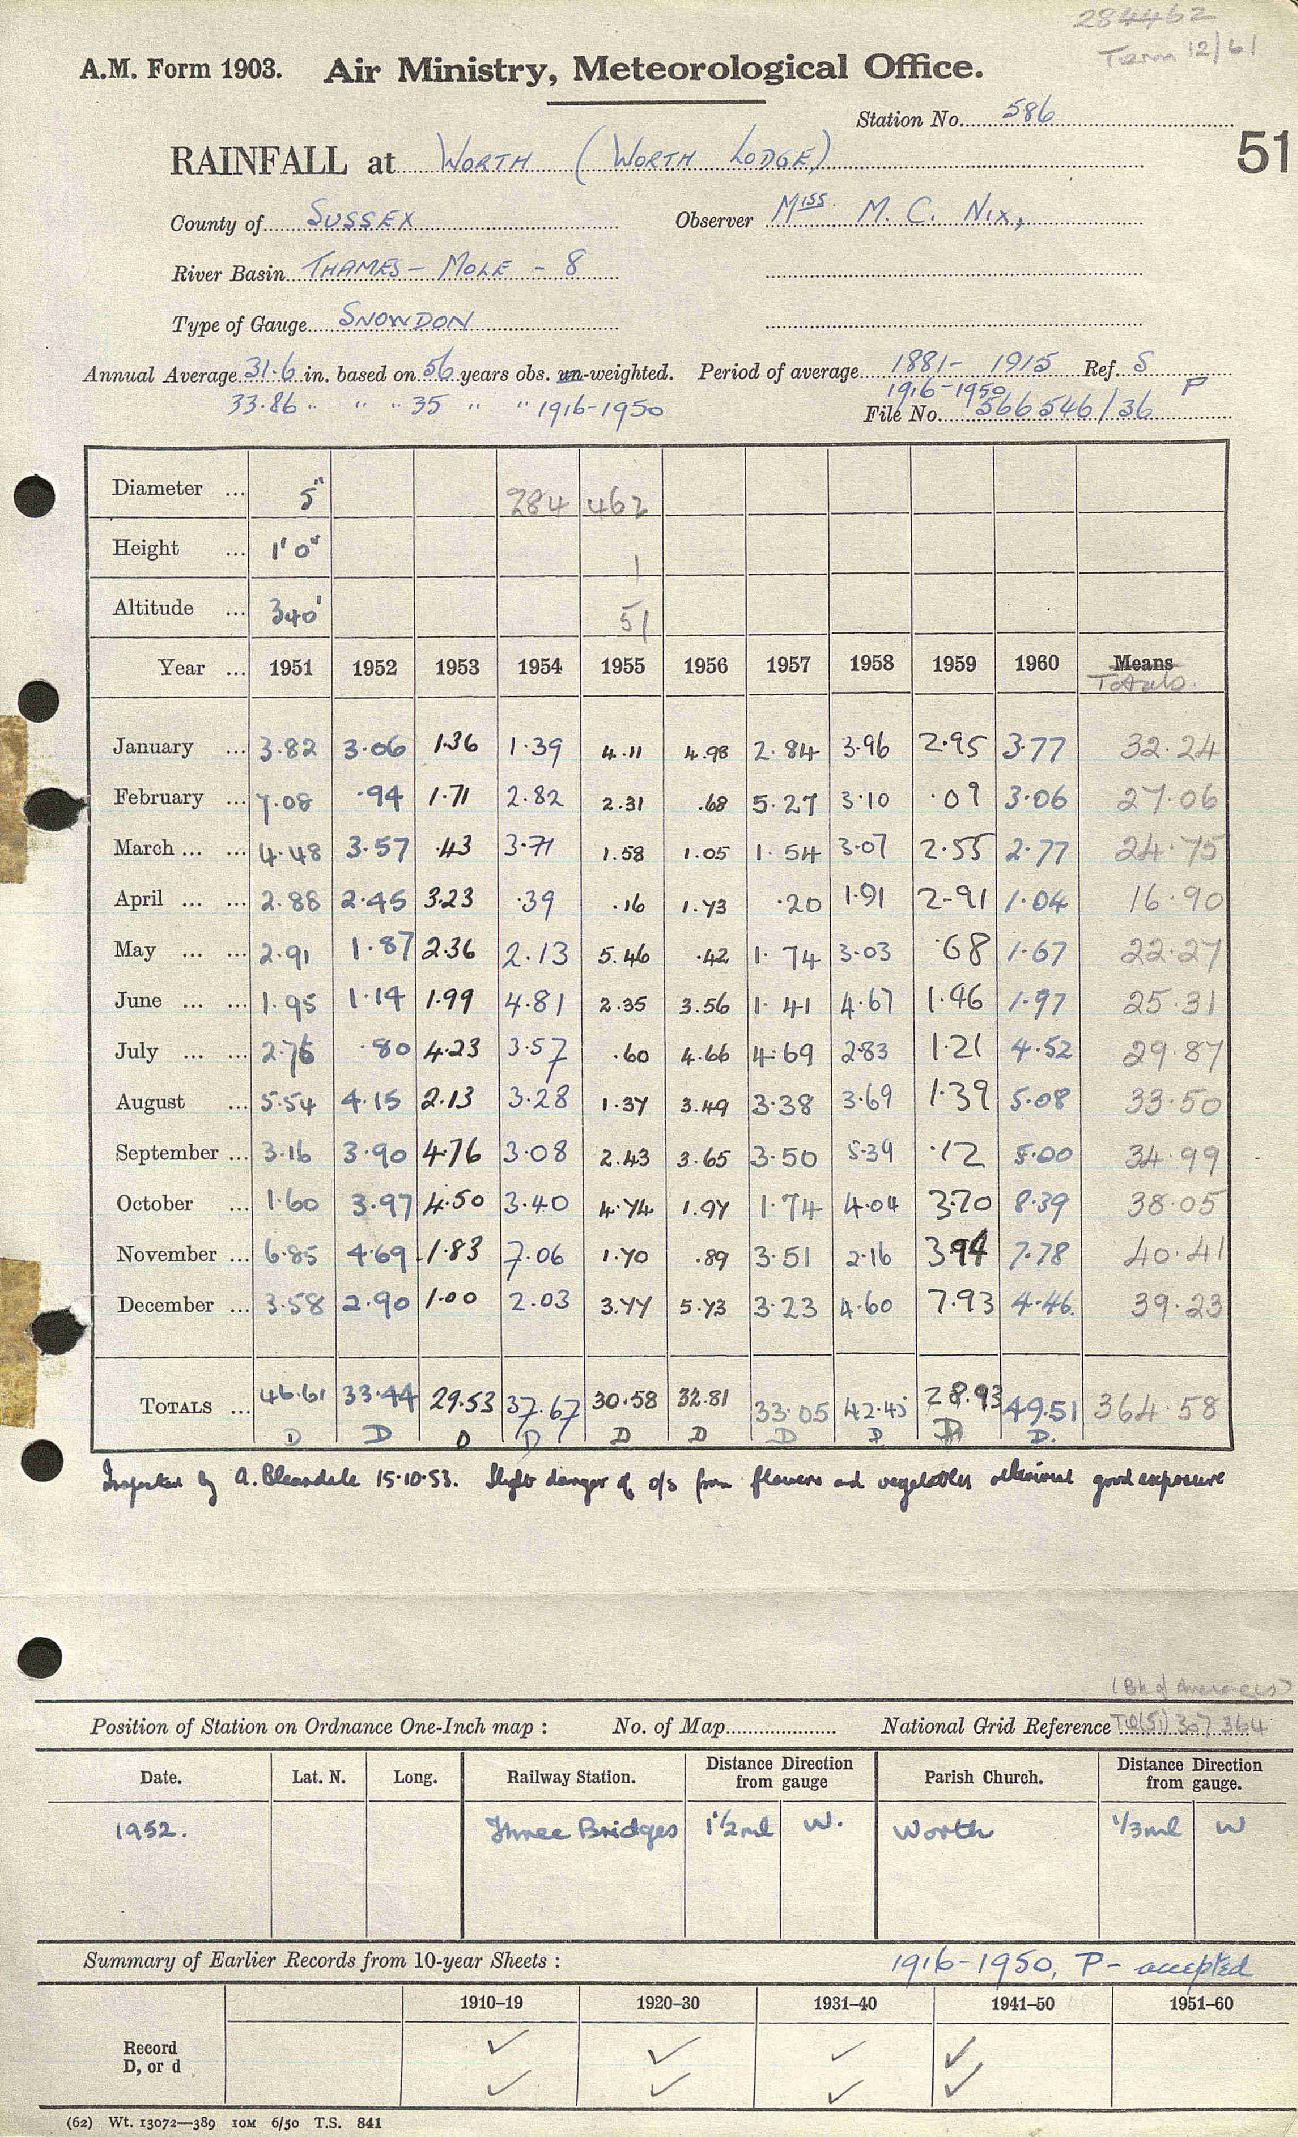 284462
Term 12/61
A.M. Form 1903. Air Ministry, Meteorological Office.
Station No. 586
51
RAINFALL at WORTH (WORTH LODGE)
County of SUSSEX Observer Miss M. C. NIX,
River Basin THAMES - MOLE - 8
Type of Gauge SNOWDON
Annual Average 31.6 in. based on 56 years obs. un-weighted. Period of average 1881- 1915 Ref. S
1916-1950 P
33.86 " " " 35 " " 1916-1950 File No. 566546/36
Diameter ... 5" 284 462
Height ... 1' 0" 1
Altitude ... 340' 51
Year ... 1951 1952 1953 1954 1955 1956 1957 1958 1959 1960 Means
Totals.
January ... 3.82 3.06 1.36 1.39 4.11 4.98 2.84 3.96 2.95 3.77 32.24
February ... 7.08 .94 1.71 2.82 2.31 .68 5.27 3.10 .09 3.06 27.06
March ... ... 4.48 3.57 .43 3.71 1.58 1.05 1.54 3.07 2.55 2.77 24.75
April ... ... 2.88 2.45 3.23 .39 .16 1.73 .20 1.91 2.91 1.04 16.90
May ... ... 2.91 1.87 2.36 2.13 5.46 .42 1.74 3.03 .68 1.67 22.27
June ... ... 1.95 1.14 1.99 4.81 2.35 3.56 1.41 4.67 1.46 1.97 25.31
July ... ... 2.76 .80 4.23 3.57 .60 4.66 4.69 2.83 1.21 4.52 29.87
August ... 5.54 4.15 2.13 3.28 1.37 3.49 3.38 3.69 1.39 5.08 33.50
September ... 3.16 3.90 4.76 3.08 2.43 3.65 3.50 5.39 .12 5.00 34.99
October ... 1.60 3.97 4.50 3.40 4.74 1.97 1.74 4.04 3.70 8.39 38.05
November ... 6.85 4.69 1.83 7.06 1.70 .89 3.51 2.16 3.94 7.78 40.41
December ... 3.58 2.90 1.00 2.03 3.77 5.73 3.23 4.60 7.93 4.46 39.23
TOTALS ... 46.61 33.44 29.53 37.67 30.58 32.81 33.05 42.45 28.93 49.51 364.58
D D D D D D D D D D.
Inspected by A. Bleasdale 15.10.53. Slight danger of o/s from flowers and vegetables otherwise good exposure
(Bk of Averages)
Position of Station on Ordnance One-Inch map : No. of Map National Grid Reference TQ(51) 307 364
Date. Lat. N. Long. Railway Station. Distance Direction from gauge Parish Church. Distance Direction from gauge.
1952. Three Bridges 1½ml W. Worth 1/3ml W
Summary of Earlier Records from 10-year Sheets : 1916-1950, P- accepted
1910–19 1920–30 1931–40 1941–50 1951–60
Record ✓ ✓ ✓ ✓
D, or d ✓ ✓ ✓ ✓
(62) Wt. 13072—389 10M 6/50 T.S. 841